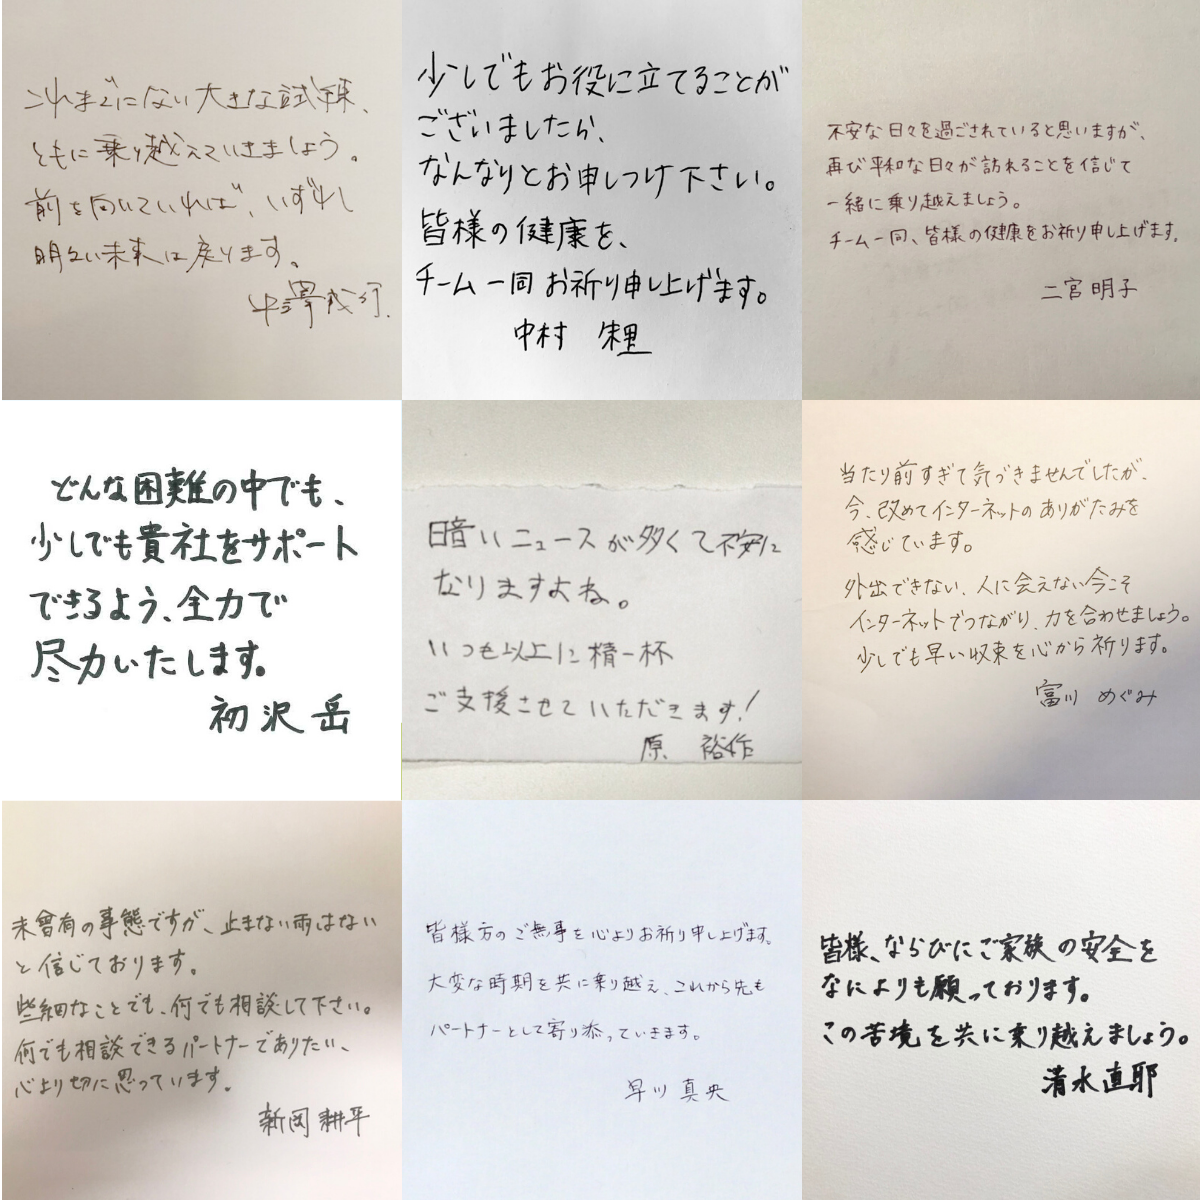 これまでにない大きな試練、
ともに乗り越えていきましょう。
前を向いていれば、いずれ
明るい未来は戻ります。
少しでもお役に立てることが
ございましたら、
なんなりとお申しつけ下さい。
皆様の健康を、
チーム一同お祈り申し上げます。
中村 朱里
不安な日々を過ごされていると思いますが、
再び平和な日々が訪れることを信じて
一緒に乗り越えましょう。
チーム一同、皆様の健康をお祈り申し上げます。
二宮明子
どんな困難の中でも、
少しでも貴社をサポート
できるよう、全力で
尽力いたします。
初沢岳
暗いニュースが多くて不安に
なりますよね。
いつも以上に精一杯
ご支援させていただきます!
原 裕作
当たり前すぎて気づきませんでしたが、
今、改めてインターネットのありがたみを
感じています。
外出できない、人に会えない今こそ
インターネットでつながり、力を合わせましょう。
少しでも早い収束を心から祈ります。
富川 めぐみ
未曾有の事態ですが、止まない雨はない
と信じております。
些細なことでも、何でも相談して下さい。
何でも相談できるパートナーでありたい、
心より切に思っています。
新岡耕平
皆様方のご無事を心よりお祈り申し上げます。
大変な時期を共に乗り越え、これから先も
パートナーとして寄り添っていきます。
早川真央
皆様、ならびにご家族の安全を
なによりも願っております。
この苦境を共に乗り越えましょう。
清水直耶